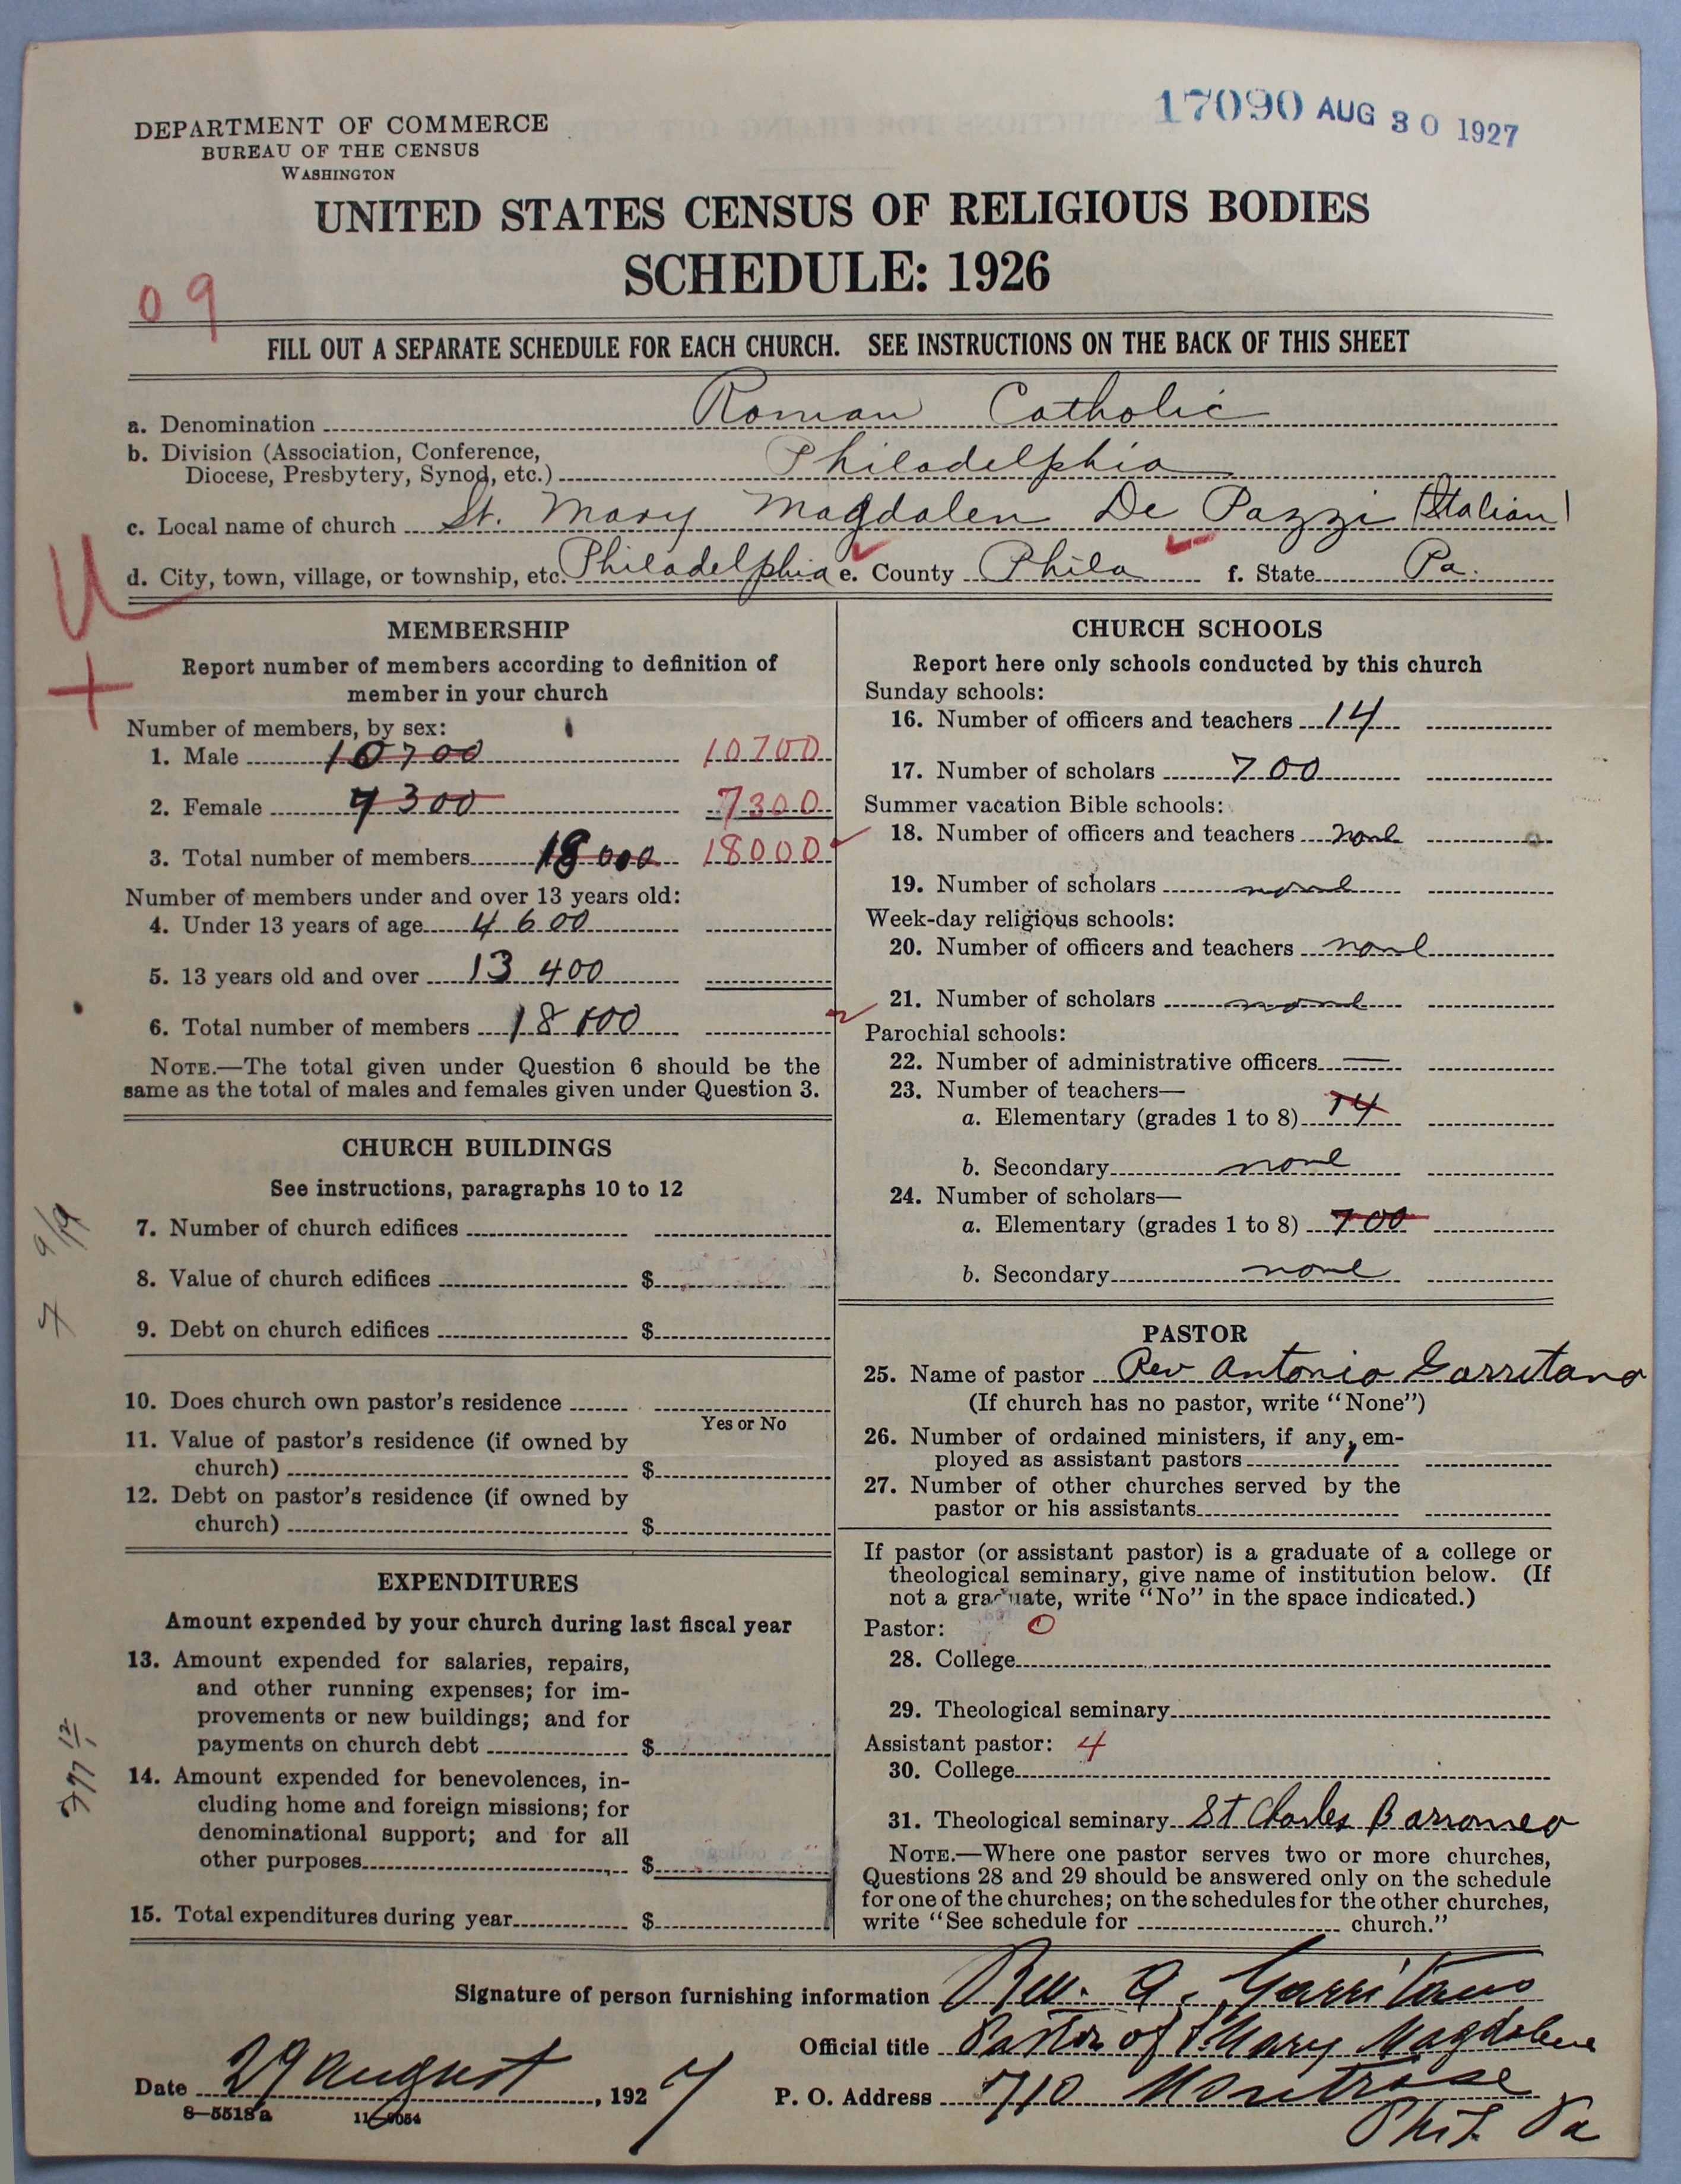 17090 AUG 30 1927
DEPARTMENT OF COMMERCE
BUREAU OF THE CENSUS
WASHINGTON
UNITED STATES CENSUS OF RELIGIOUS BODIES
SCHEDULE: 1926
09
FILL OUT A SEPARATE SCHEDULE FOR EACH CHURCH. SEE INSTRUCTIONS ON THE BACK OF THIS SHEET
a. Denomination Roman Catholic
b. Division (Association, Conference,
Diocese, Presbytery, Synod, etc.) Philadelphia
c. Local name of church St. Mary Magdalen De Pazzi (Italian)
d. City, town, village, or township, etc. Philadelphia e. County Phila f. State Pa.
MEMBERSHIP
Report number of members according to definition of
member in your church
Number of members, by sex:
1. Male 10700 10700
2. Female 7300 7300
3. Total number of members 18000 18000
Number of members under and over 13 years old:
4. Under 13 years of age 4600
5. 13 years old and over 13 400
6. Total number of members 18000
NOTE.—The total given under Question 6 should be the
same as the total of males and females given under Question 3.
CHURCH BUILDINGS
See instructions, paragraphs 10 to 12
7. Number of church edifices
8. Value of church edifices $
9. Debt on church edifices $
10. Does church own pastor's residence
Yes or No
11. Value of pastor's residence (if owned by
church) $
12. Debt on pastor's residence (if owned by
church) $
EXPENDITURES
Amount expended by your church during last fiscal year
13. Amount expended for salaries, repairs,
and other running expenses; for im-
provements or new buildings; and for
payments on church debt $
14. Amount expended for benevolences, in-
cluding home and foreign missions; for
denominational support; and for all
other purposes $
15. Total expenditures during year $
CHURCH SCHOOLS
Report here only schools conducted by this church
Sunday schools:
16. Number of officers and teachers 14
17. Number of scholars 700
Summer vacation Bible schools:
18. Number of officers and teachers none
19. Number of scholars none
Week-day religious schools:
20. Number of officers and teachers none
21. Number of scholars none
Parochial schools:
22. Number of administrative officers
23. Number of teachers—
a. Elementary (grades 1 to 8) 14
b. Secondary none
24. Number of scholars—
a. Elementary (grades 1 to 8) 700
b. Secondary none
PASTOR
25. Name of pastor Rev Antonio Garritano
(If church has no pastor, write "None")
26. Number of ordained ministers, if any, em-
ployed as assistant pastors
27. Number of other churches served by the
pastor or his assistants
If pastor (or assistant pastor) is a graduate of a college or
theological seminary, give name of institution below. (If
not a graduate, write "No" in the space indicated.)
Pastor: 0
28. College
29. Theological seminary
Assistant pastor: 4
30. College
31. Theological seminary St Charles Barromeo
NOTE.—Where one pastor serves two or more churches,
Questions 28 and 29 should be answered only on the schedule
for one of the churches; on the schedules for the other churches,
write "See schedule for church."
Signature of person furnishing information Rev. A. Garritano
Official title Pastor of St Mary Magdalene
Date 29 August, 1927 P. O. Address 710 Montrose
8—5518a 11—9054
Phil. Pa